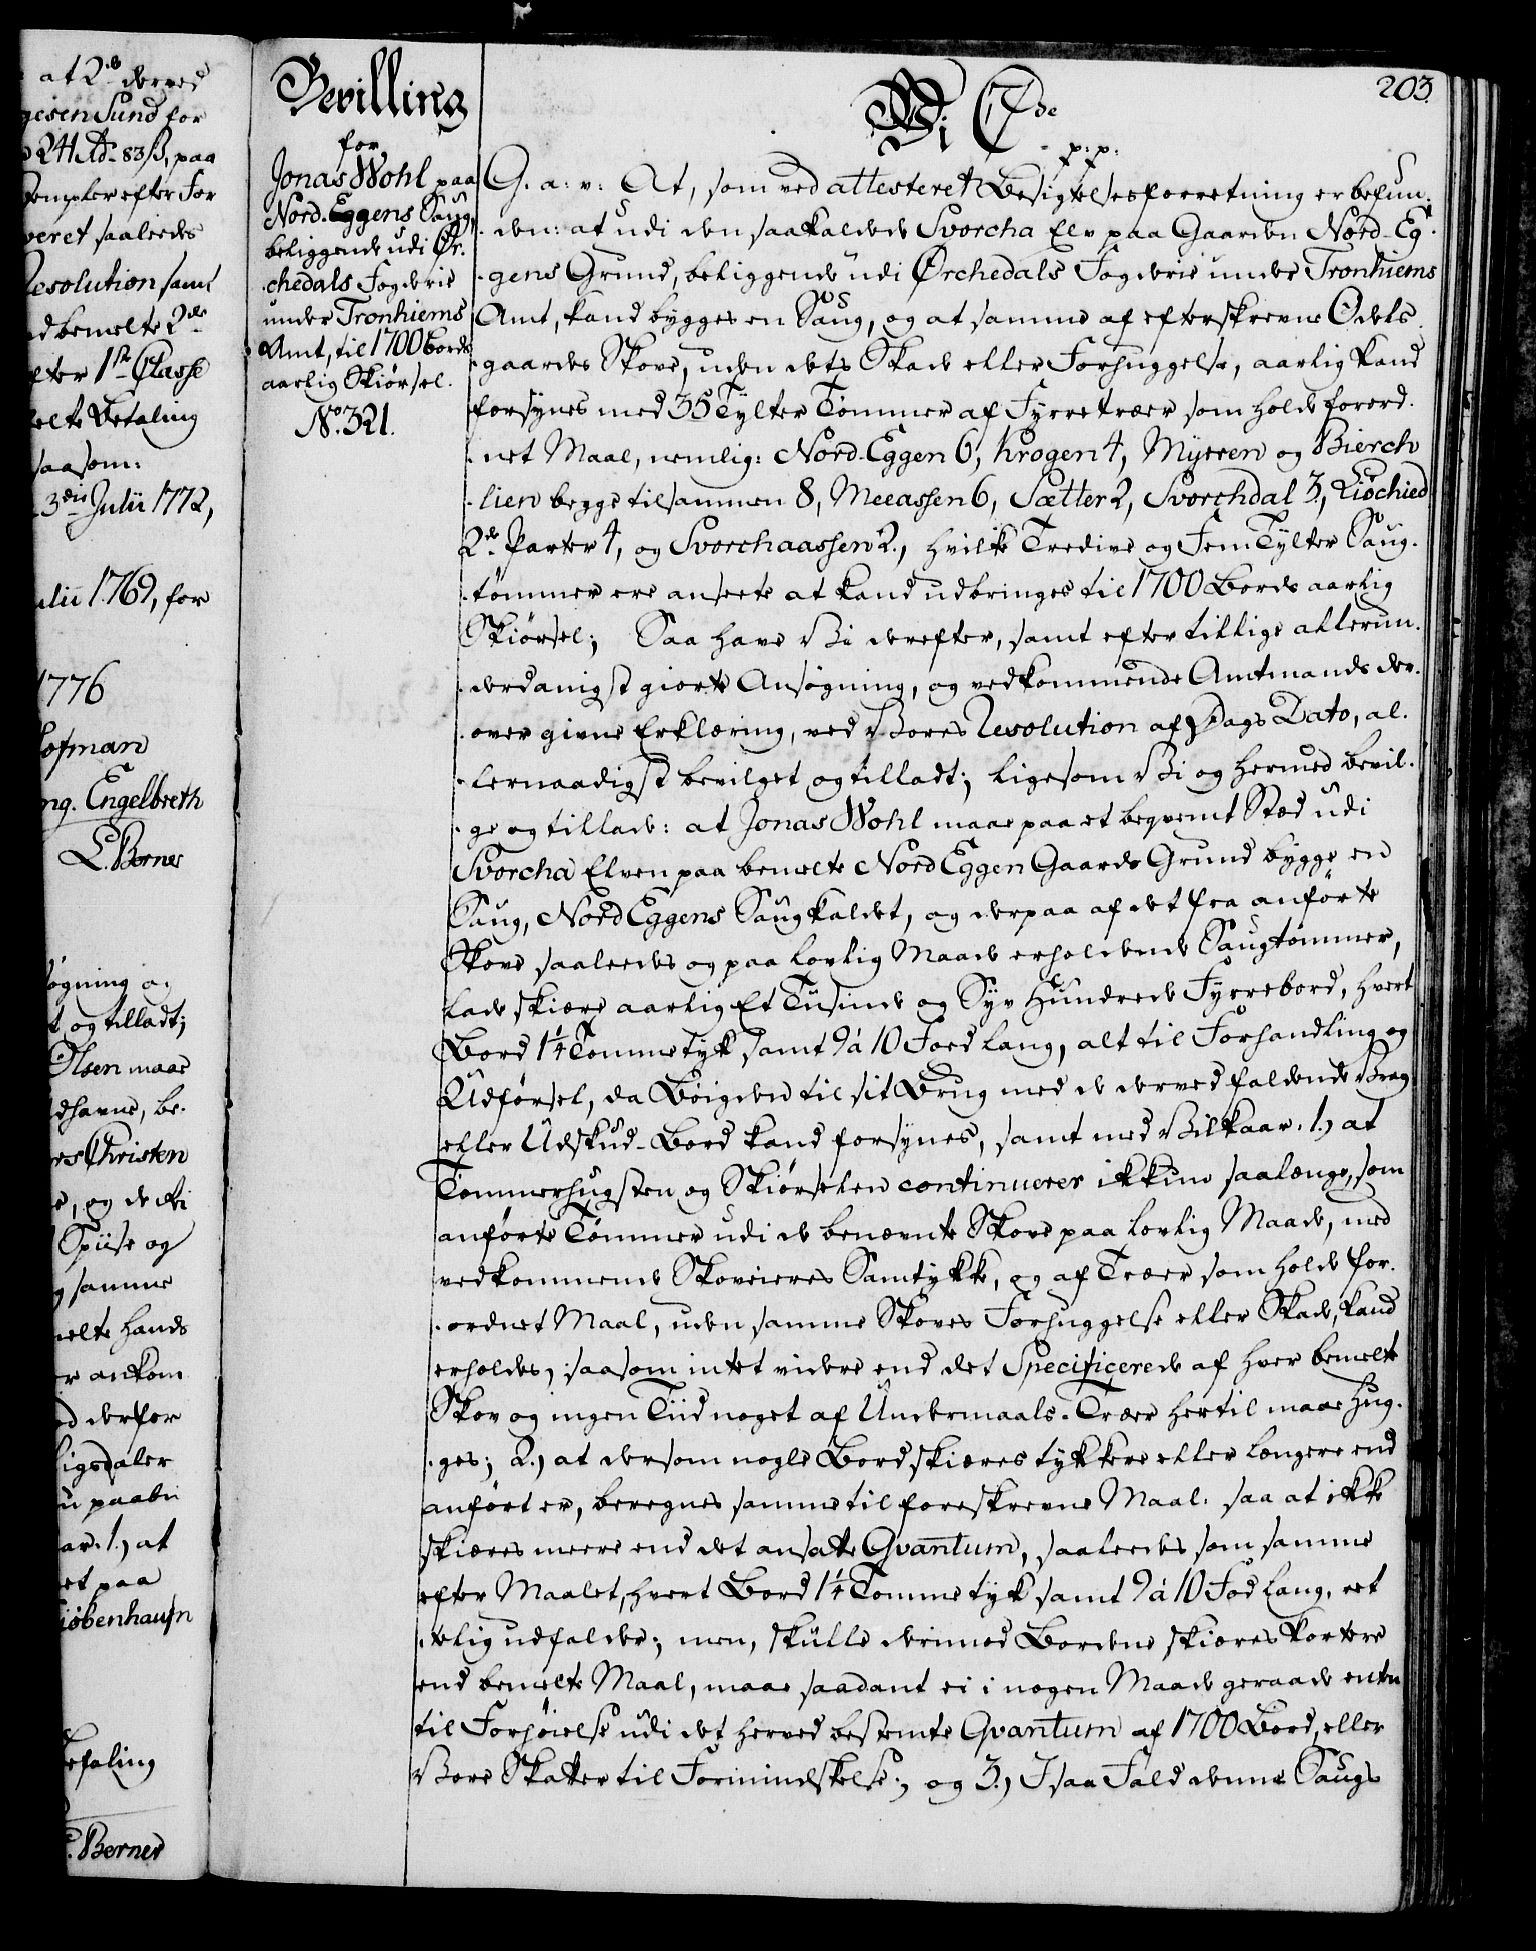 at 2de derved
gesen Sund for
24 Rd. 83 ß, paa
Templer efter For
veret saaledes
Resolution samt
ud bemelte 2de
efter 1ste Classe
melte Betaling
saasom:
3die Julii 1772,
Julii 1769, for
1776
Hofman
ng. Engelbreth
L. Borner
søgning og
t og tilladt;
Olsen maae
dhavne, be-
rs Christen
e, og de Ri
Spiise og
g samme
melte hands
er ankom
ed derfor
Rigsdaler
u paabu
aar. 1.) at
et paa
Kiøbenhaufn
Befaling
C. Berner
Bevilling
for
Jonas Wohl paa
Nord-Eggens Saug,
beliggende udi Or-
-chedals Fogderie
under Tronhiems
Amt, til 1700 Bords
aarlig Skiørsel.
No. 321.
203.
Vi C 7de
p: p:
G. a: v: At, som ved attesteret Besigtelsesforretning er befun-
-den: at udi den saakaldede Svorcha Elv paa Gaarden Nord-Eg-
-gens Grund, beliggende udi Ørchedals Fogderie under Tronhiems
Amt, kand bygges en Saug, og at samme af efterskrevne Odels-
-gaardes Skove, uden dets Skade eller Forhuggelse, aarlig kand
forsynes med 35 Tylter Tømmer af Fyrretræer som holde forord-
-net Maal, nemlig: Nord-Eggen 6, Krogen 4, Myrren og Bierch
-lien begge tilsammen 8, Meeassen 6, Sætter 2, Svorchdal 3, Liøchied
2de Parter 4, og Svorchaassen 2., hvilke Tredive og Fem Tylter Saug-
-tømmer ere ansette at kand udbringes til 1700 Bords aarlig
Skiørsel; Saa have Vi derefter, samt efter tillige allerun-
-derdanigst giorte Ansøgning, og vedkommende Amtmands der-
-over givne Erklæring, ved Vores Resolution af Dags Dato, al-
-lernaadigst bevilget og tilladt; ligesom Vi og hermed bevil-
-ge og tillade: at Jonas Wohl maae paa et beqvemt Stæd udi
Svorcha Elven paa bemelte Nord Eggen Gaards Grund bygge en
Saug, Nord Eggens Saug kaldet, og derpaa af det fra anførte
Skove saaledes og paa lovlig Maade erholdende Saugtømmer,
lade skiære aarlig Et Tusinde og Syv Hundrede Fyrrebord, hvert
Bord 1¼ Tomme tyk samt 9 á 10 Foed lang, alt til Forhandling og
Udførsel, da Bøigden til sit Brug med de derved faldende Vrag
eller Udskud-Bord kand forsynes, samt med Vilkaar. 1.) at
Tømmerhugsten og Skiørselen continuerer ikkun saalænge, som
anførte Tømmer udi de benævnte Skove paa lovlig Maade, med
vedkommende Skoveieres Samtykke, og af Træer som holde for-
-ordnet Maal, uden samme Skoves Forhuggelse eller Skade, kand
erholdes, saasom intet videre end det Specificerede af hver bemelte
Skov og ingen Tiid noget af Undermaals-Træer hertil maae hug-
-ges; 2.) at dersom nogle Bord skiæres tykkere eller længere end
anført er, beregnes samme til foreskrevne Maal. saa at ikke
skiæres meere end det ansatte Qvantum, saaledes som samme
efter Maalet, hvert Bord 1¼ Tomme tyk samt 9 á 10 Fod lang, ret
-telig udfalder; men, skulle derimod Bordene skiæres kortere
end bemelte Maal, maae saadant ei i nogen Maade geraade enten
til Forhøielse udi det herved bestemte Qvantum af 1700 Bord, eller
Vore Skatter til Formindskelse; og 3.) I saa Fald denne Saugs